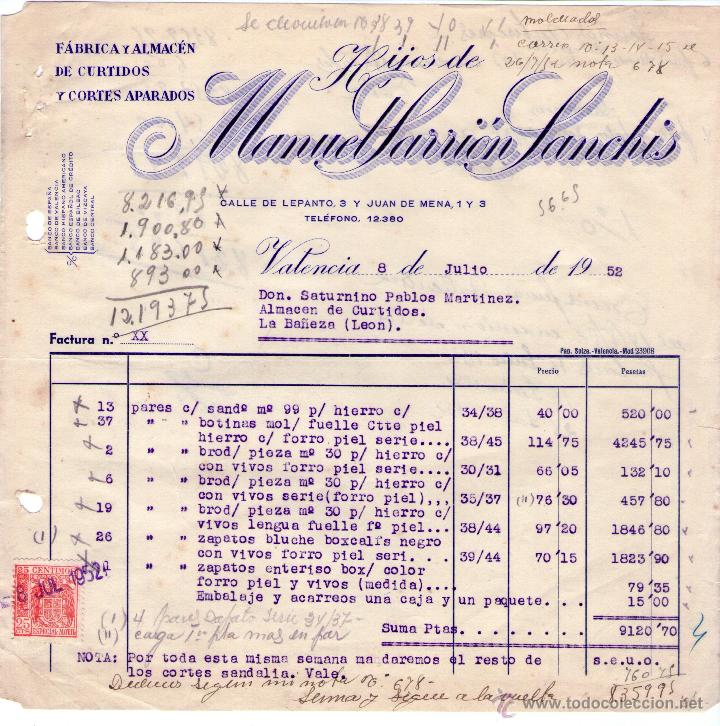 Se devuelven
moldeados
correo nº: 13-14-15 de
26/7/52 nota 678
FÁBRICA Y ALMACÉN
DE CURTIDOS
Y CORTES APARADOS
Hijos de
Manuel Sarrión Sanchis
BANCO DE ESPAÑA
BANCO DE VALENCIA
BANCO HISPANO AMERICANO
BANCO ESPAÑOL DE CRÉDITO
BANCO DE BILBAO
BANCO DE VIZCAYA
BANCO CENTRAL
CALLE DE LEPANTO, 3 Y JUAN DE MENA, 1 Y 3
TELÉFONO, 12.380
56.65
8.216,95
1.900,80
1.183.00
893 00
12.193 75
Valencia 8 de Julio de 1952
Don. Saturnino Pablos Martinez.
Almacen de Curtidos.
La Bañeza (Leon).
Factura n.º XX
Pap. Soize.-Valencia.-Mod 23908
Precio Pesetas
13 pares c/ sandº mº 99 p/ hierro c/ 34/38 40'00 520'00
37 " " botinas mol/ fuelle Ctte piel
hierro c/ forro piel serie.... 38/45 114'75 4245'75
2 " " brod/ pieza mº 30 p/ hierro c/
con vivos forro piel serie.... 30/31 66'05 132'10
6 " " brod/ pieza mº 30 p/ hierro c/
con vivos serie(forro piel),,, 35/37 (11) 76'30 457'80
19 " " brod/ pieza mº 30 p/ hierro c/
vivos lengua fuelle fº piel... 38/44 97'20 1846'80
(1) 26 " " zapatos bluche boxcalfs negro
con vivos forro piel seri. ... 39/44 70'15 1823'90
" " zapatos enteriso box/ color
forro piel y vivos (medida).... 79'35
Embalaje y acarreos una caja y un paquete.... 15'00
25 CENTIMOS
8 JUL 1952
ESPECIAL MÓVIL
(1) 4 pares Zapato Serie 34/37-
(11) carga 1ª pta mas en par
Suma Ptas. 9120'70
NOTA: Por toda esta misma semana ma daremos el resto de s.e.u.o.
los cortes sandalia. Vale.
760.75
Deducir según mi nota nº: 678-
8359.95
Suma y sigue a la vuelta
todocoleccion.net